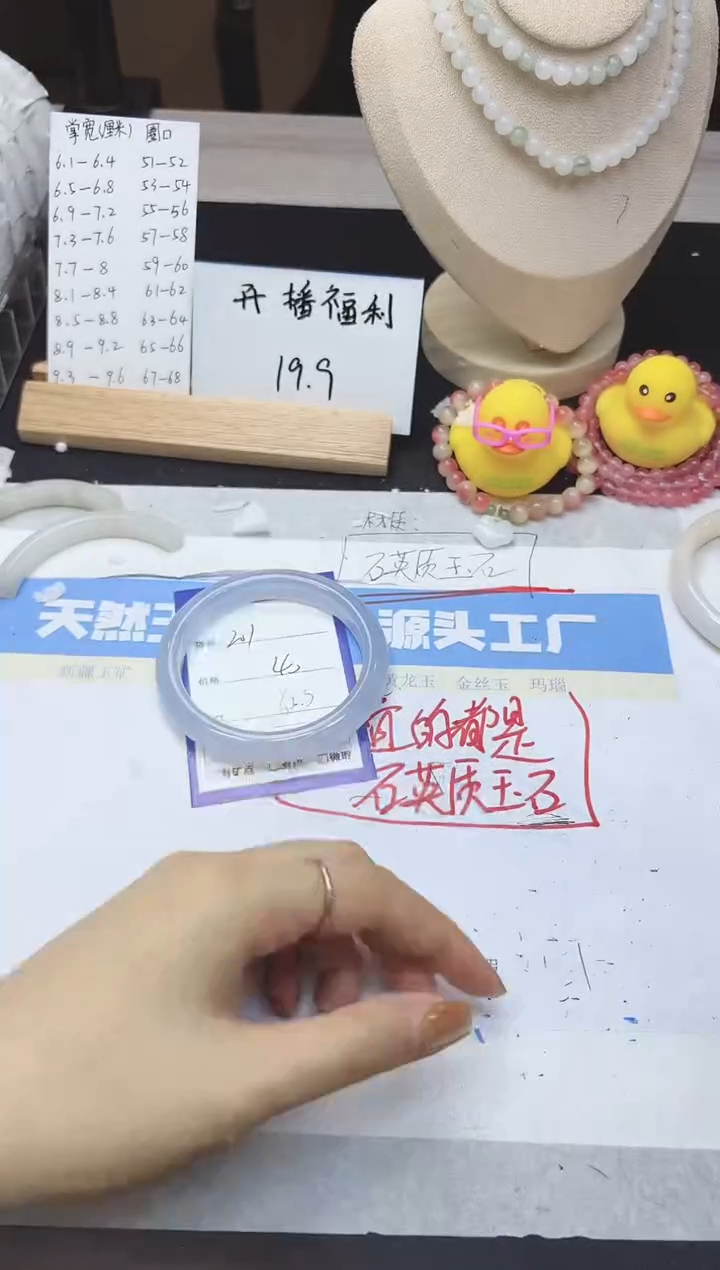 掌宽(厘米) 圈口
6.1-6.4 51-52
6.5-6.8 53-54
6.9-7.2 55-56
7.3-7.6 57-58
7.7-8 59-60
8.1-8.4 61-62
8.5-8.8 63-64
8.9-9.2 65-66
9.3-9.6 67-68
开播福利
19.9
材质:
石英质玉石
天然玉 源头工厂
新疆玉矿 黄龙玉 金丝玉 玛瑙
201
价格
的都是
石英质玉石